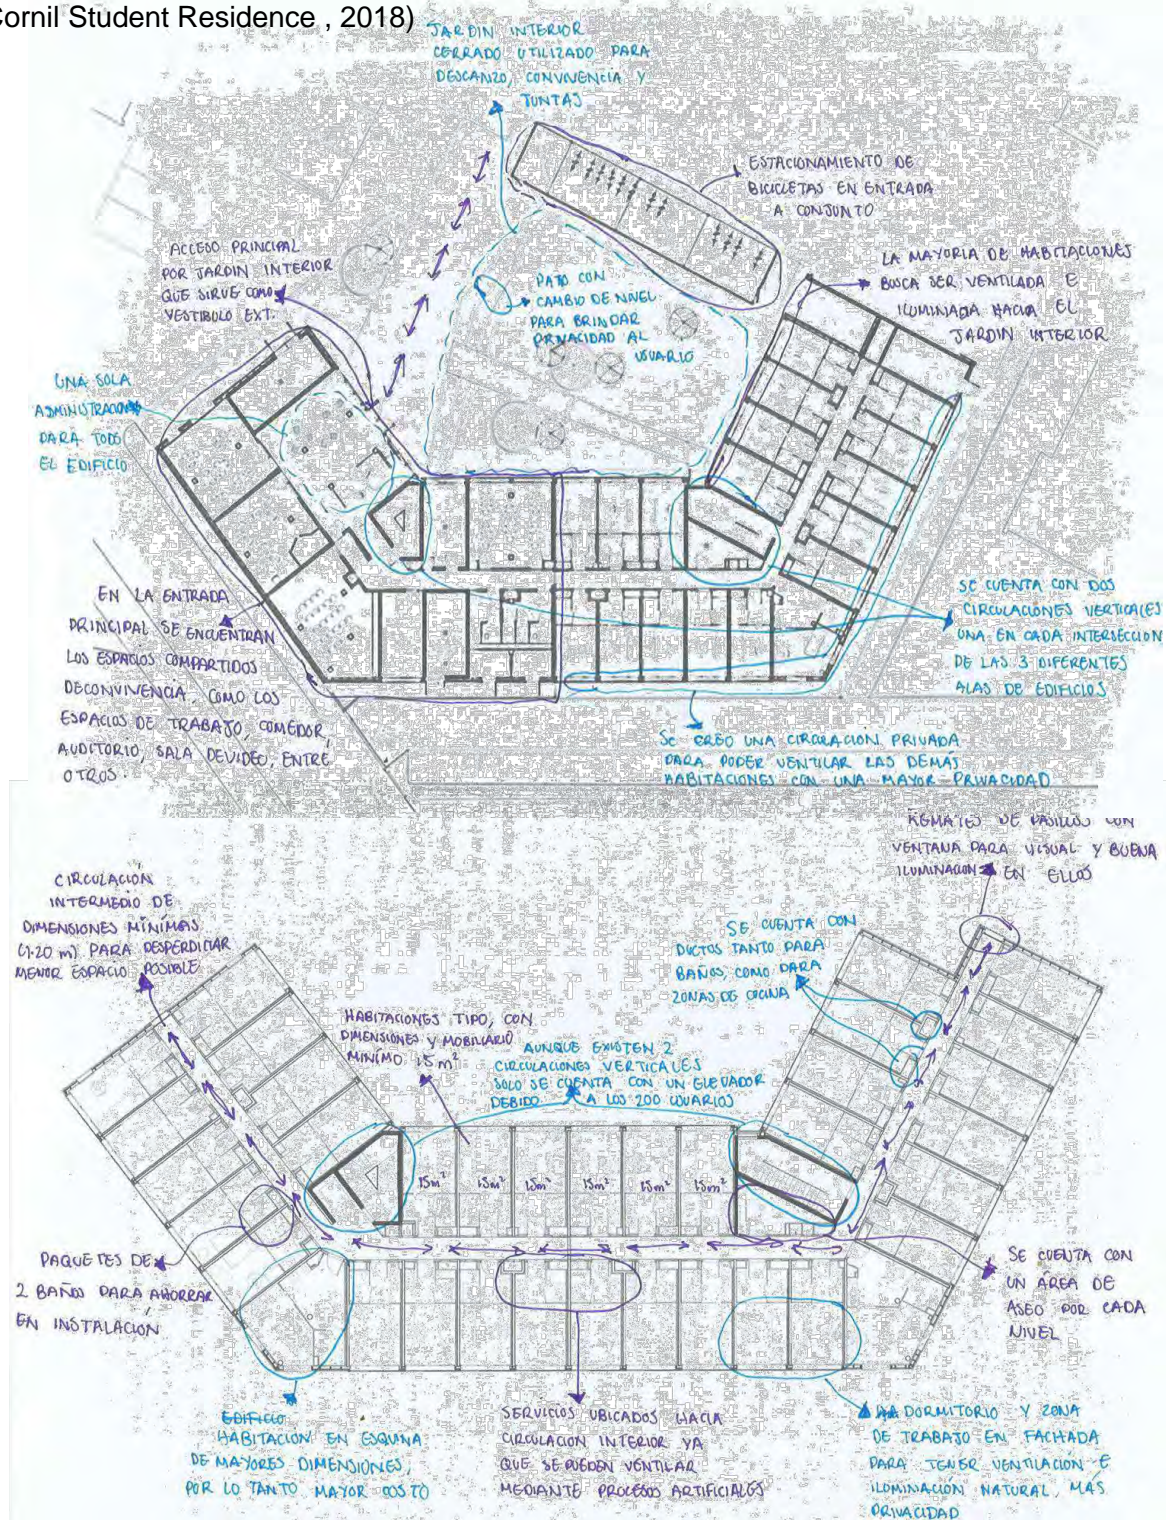 Cornil Student Residence , 2018)
JARDIN INTERIOR
CERRADO UTILIZADO PARA
DESCANZO, CONVIVENCIA Y
JUNTAS
ESTACIONAMIENTO DE
BICICLETAS EN ENTRADA
A CONJUNTO
ACCESO PRINCIPAL
POR JARDIN INTERIOR
QUE SIRVE COMO
VESTIBULO EXT.
PATIO CON
CAMBIO DE NIVEL
PARA BRINDAR
PRIVACIDAD AL
USUARIO
LA MAYORIA DE HABITACIONES
BUSCA SER VENTILADA E
ILUMINADA HACIA EL
JARDIN INTERIOR
UNA SOLA
ADMINISTRACION
PARA TODO
EL EDIFICIO
EN LA ENTRADA
PRINCIPAL SE ENCUENTRAN
LOS ESPACIOS COMPARTIDOS
DECONVIVENCIA, COMO LOS
ESPACIOS DE TRABAJO, COMEDOR,
AUDITORIO, SALA DEVIDEO, ENTRE
OTROS.
SE CUENTA CON DOS
CIRCULACIONES VERTICALES
UNA EN CADA INTERSECCION
DE LAS 3 DIFERENTES
ALAS DE EDIFICIOS
SE CREO UNA CIRCULACION PRIVADA
PARA PODER VENTILAR LAS DEMÁS
HABITACIONES CON UNA MAYOR PRIVACIDAD
REMATES DE PASILLOS CON
VENTANA PARA VISUAL Y BUENA
ILUMINACION EN ELLOS
CIRCULACIÓN
INTERMEDIO DE
DIMENSIONES MÍNIMAS
(1.20 m) PARA DESPERDICIAR
MENOR ESPACIO POSIBLE
SE CUENTA CON
DUCTOS TANTO PARA
BAÑOS, COMO PARA
ZONAS DE COCINA
HABITACIONES TIPO, CON
DIMENSIONES Y MOBILIARIO
MINIMO 15 m²
AUNQUE EXISTEN 2
CIRCULACIONES VERTICALES
SOLO SE CUENTA CON UN ELEVADOR
DEBIDO A LOS 200 USUARIOS
15m² 15m² 15m² 15m² 15m² 15m²
PAQUETES DE
2 BAÑOS PARA AHORRAR
EN INSTALACIÓN
SE CUENTA CON
UN ÁREA DE
ASEO POR CADA
NIVEL
EDIFICIO
HABITACIÓN EN ESQUINA
DE MAYORES DIMENSIONES,
POR LO TANTO MAYOR COSTO
SERVICIOS UBICADOS HACIA
CIRCULACION INTERIOR YA
QUE SE PUEDEN VENTILAR
MEDIANTE PROCESOS ARTIFICIALES
DORMITORIO Y ZONA
DE TRABAJO EN FACHADA
PARA TENER VENTILACIÓN E
ILUMINACIÓN NATURAL, MAS
PRIVACIDAD